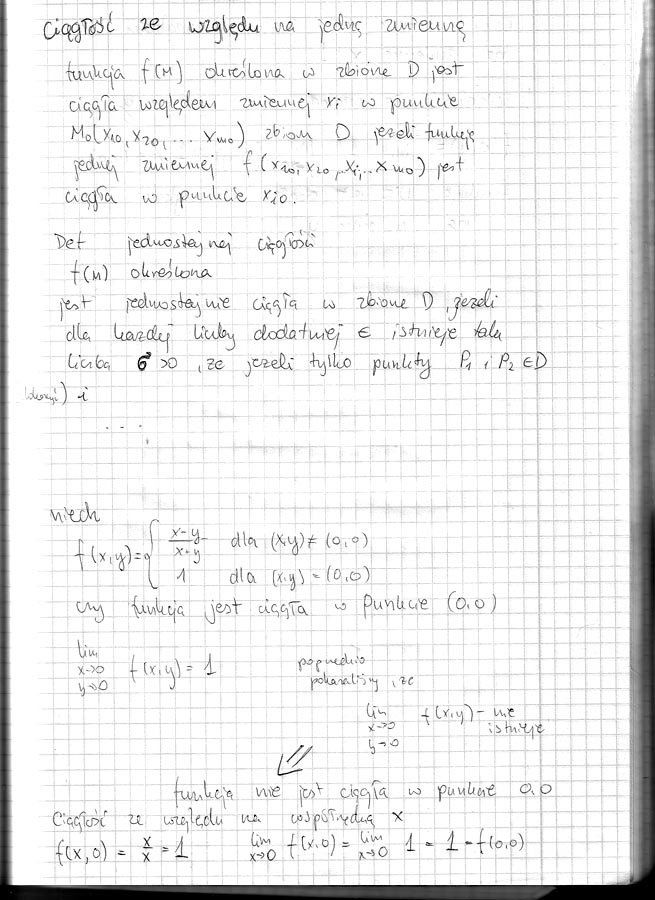 Ciągłość ze względu na jedną zmienną
funkcja f(M) określona w zbiorze D jest
ciągła względem zmiennej xi w punkcie
M₀(x₁₀, x₂₀, ... xₘ₀) zbioru D jeżeli funkcja
jednej zmiennej f(x₁₀, x₂₀, xi, .. xₘ₀) jest
ciągła w punkcie xi₀.
Def jednostajnej ciągłości
f(M) określona
jest jednostajnie ciągła w zbiorze D, jeżeli
dla każdej liczby dodatniej ε istnieje taka
liczba δ >0, że jeżeli tylko punkty P₁ i P₂ ∈ D
) i
...
niech
f(x,y) = { x-y / x+y dla (x,y) ≠ (0,0)
1 dla (x,y) = (0,0)
czy funkcja jest ciągła w punkcie (0,0)
lim x→0 y→0 f(x,y) = 1
poprzednio
pokazaliśmy, że
lim x→0 y→0 f(x,y) - nie
istnieje
funkcja nie jest ciągła w punkcie 0,0
Ciągłość ze względu na współrzędną x
f(x,0) = x/x = 1 lim x→0 f(x,0) = lim x→0 1 = 1 = f(0,0)